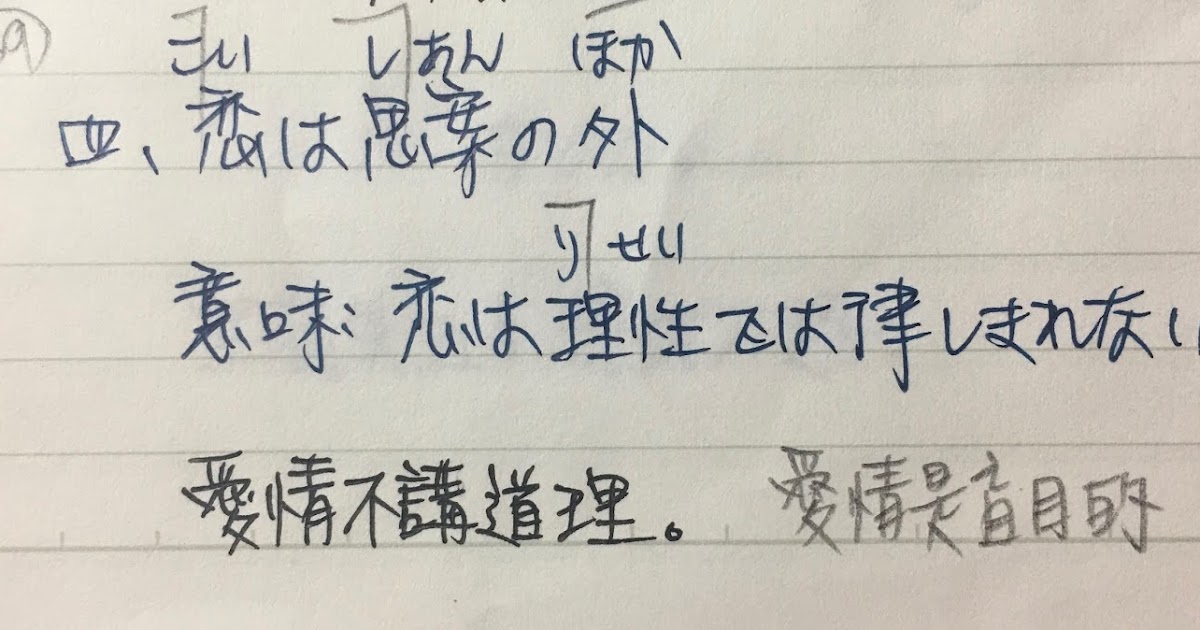 こい しあん ほか
四、恋は思案の外
りせい
意味:恋は理性では律しまれない
愛情不講道理。 愛情是盲目的